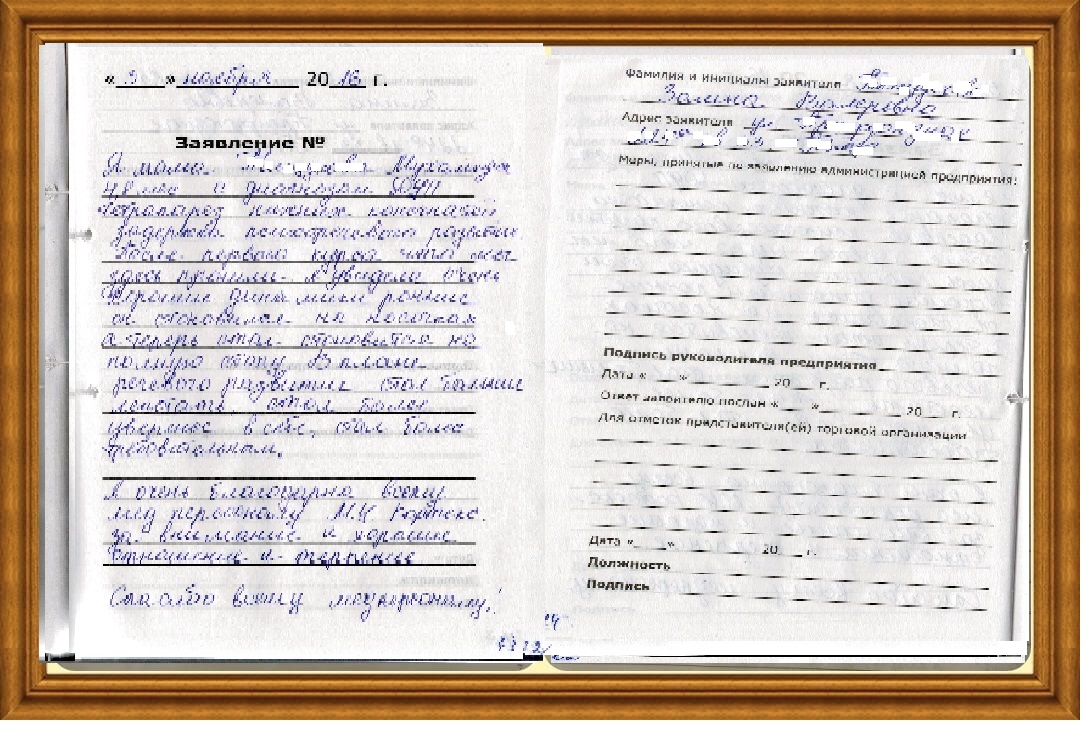 « 9 » ноября 2016 г.
Заявление №
Я мама Мухаммада
и диагнозом ДЦП
нижних конечностей
задержка психоречевого развития
После первого курса
здесь прошли. Я увидела очень
динамики раньше
он становился на носочках
а теперь стал становится на
полную стопу. В плане
речевого развития стал больше
лепетать, стал более
в себе, стал более
требовательным.
Я очень благодарна всему
мед персоналу М.Ц.
за внимание и хорошее
отношение и терпение
Спасибо всему медперсоналу!
Фамилия и инициалы заявителя
Залина Валерьевна
Адрес заявителя
Меры, принятые по заявлению администрацией предприятия:
Подпись руководителя предприятия
Дата « » 20 г.
Ответ заявителю послан « » 20 г.
Для отметок представителя(ей) торговой организации
Дата « » 20 г.
Должность
Подпись